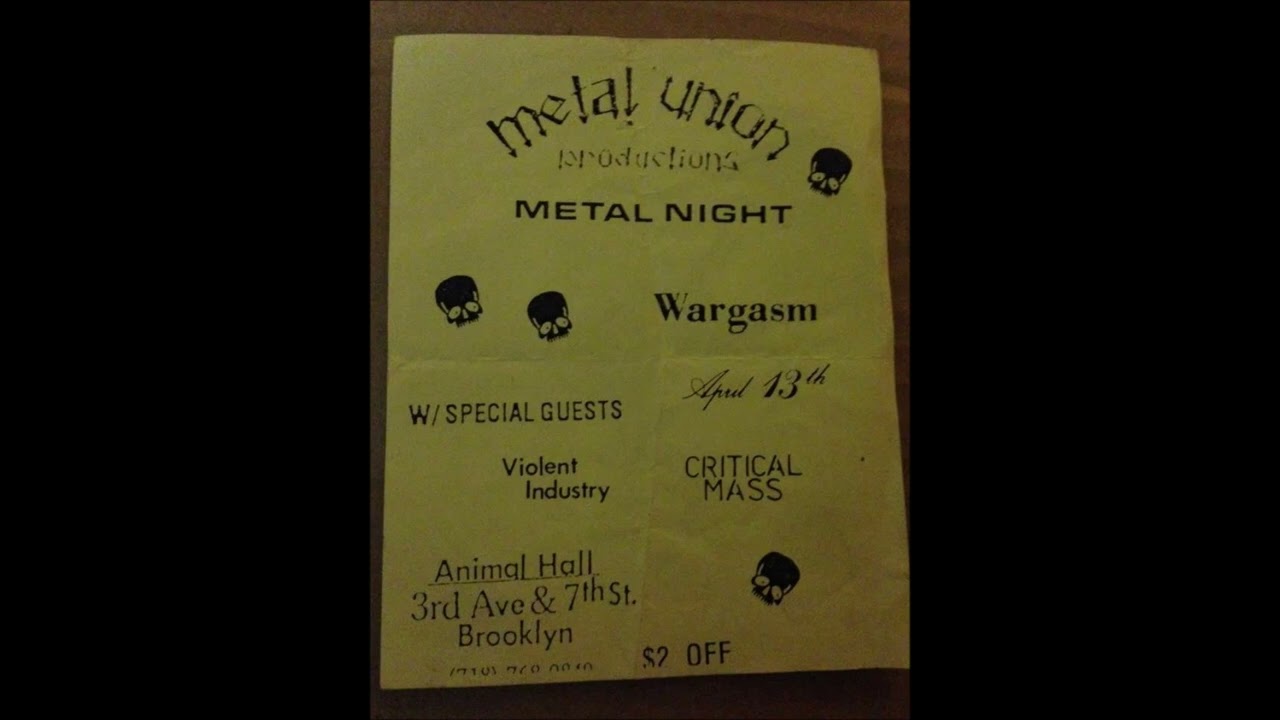 metal union
productions
METAL NIGHT
Wargasm
April 13th
W/ SPECIAL GUESTS
Violent
Industry
CRITICAL
MASS
Animal Hall
3rd Ave & 7th St.
Brooklyn
(718)
$2 OFF